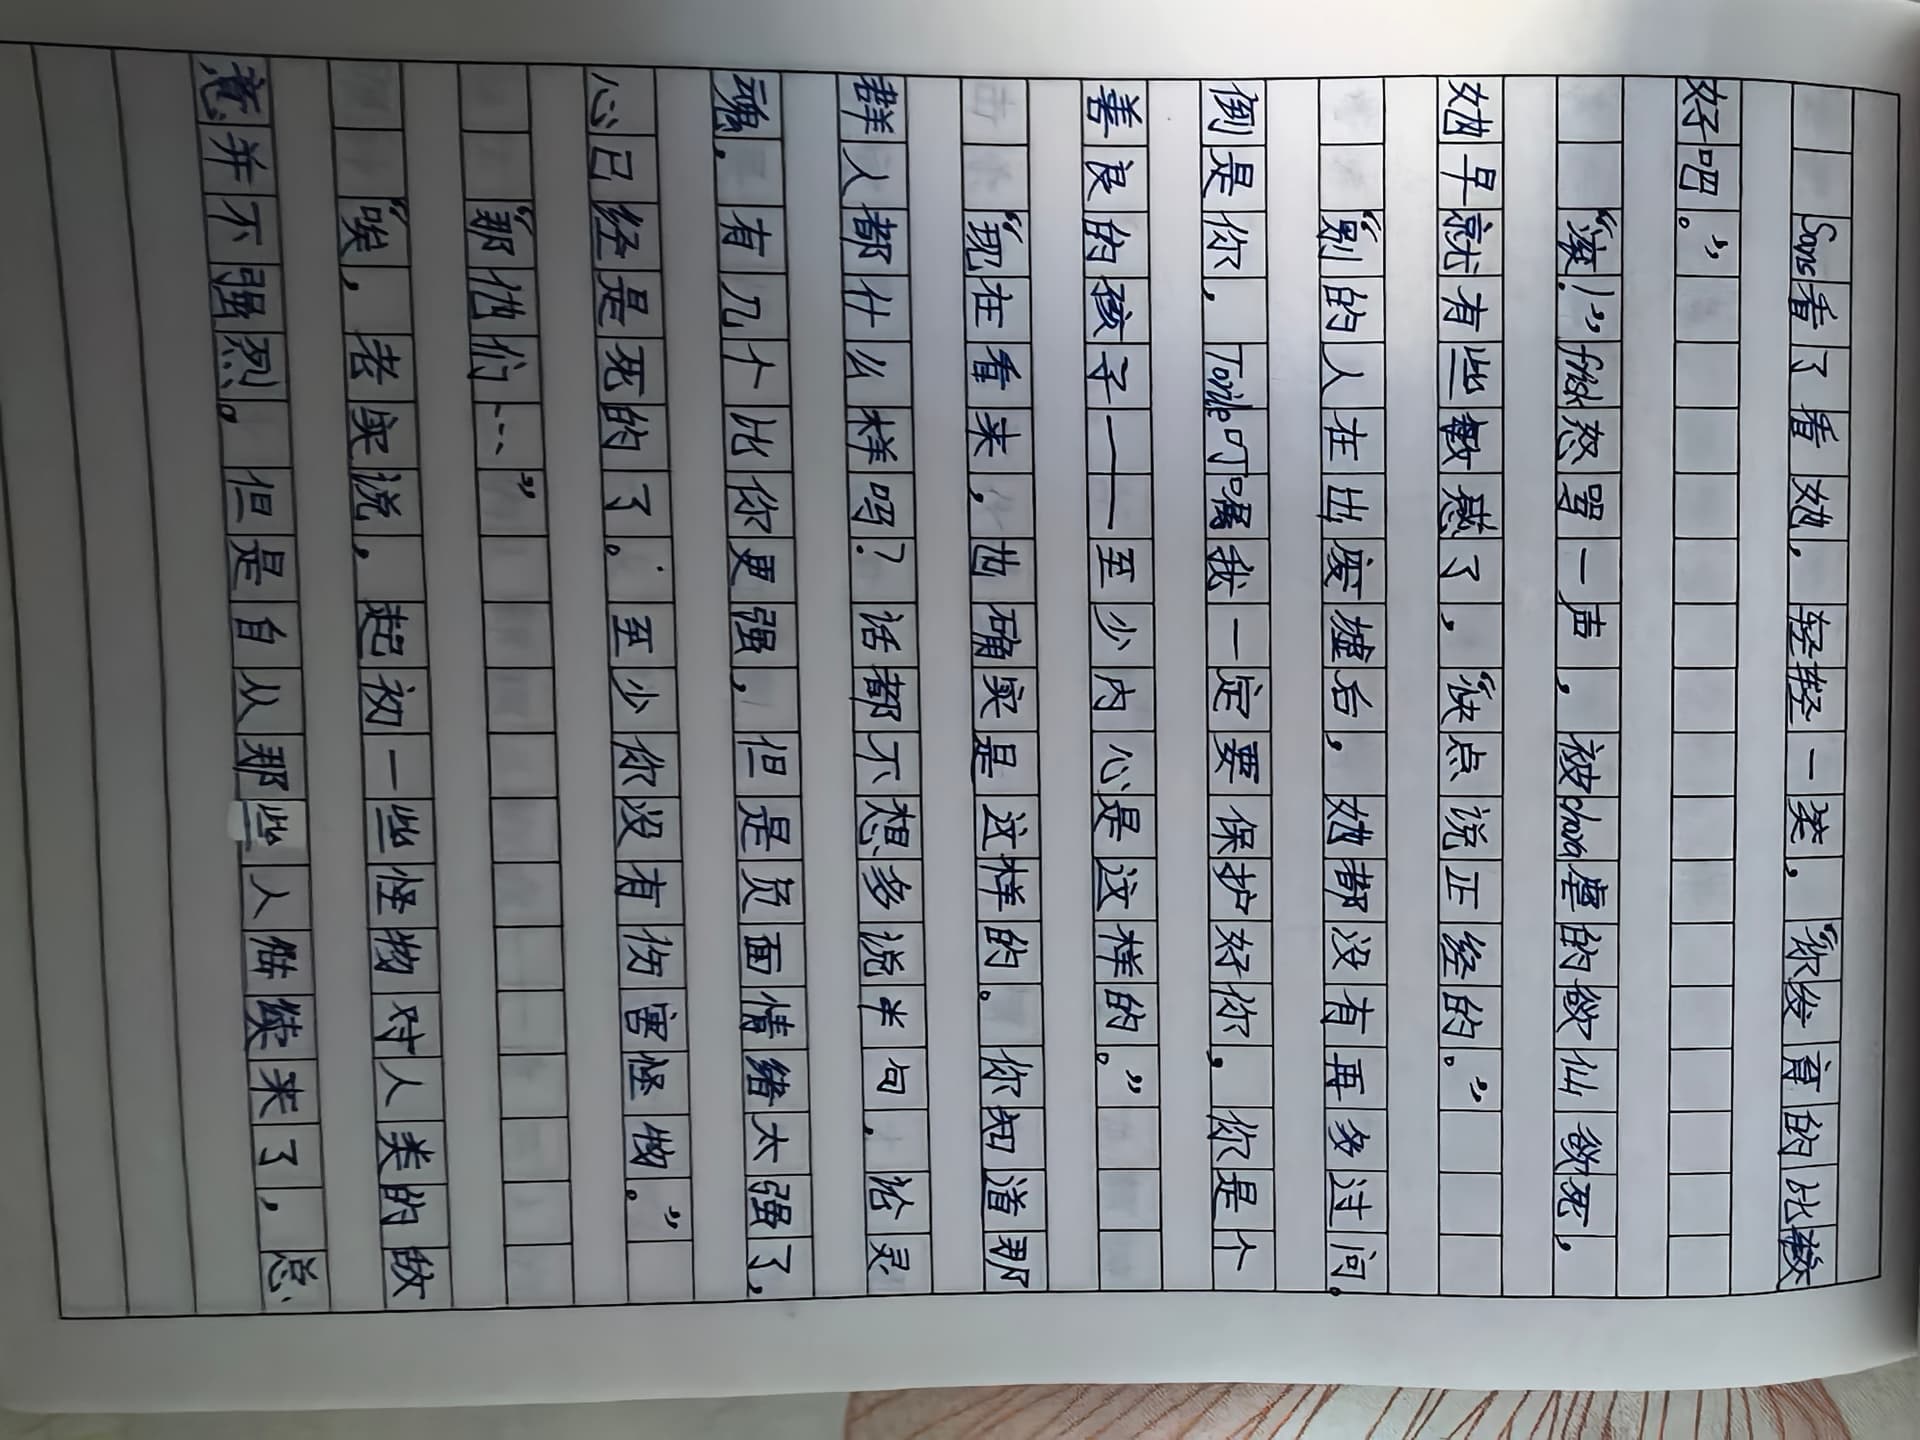 Sans看了看她，轻轻一笑，“你发育的比较
好吧。”
“滚！”frisk怒骂一声，被chara虐的欲仙欲死，
她早就有些敏感了，“快点说正经的。”
“别的人在出废墟后，她都没有再多过问。
倒是你，Toriel叮嘱我一定要保护好你，你是个
善良的孩子——至少内心是这样的。”
“现在看来，也确实是这样的。你知道那
群人都什么样吗？话都不想多说半句，论灵
魂，有几个比你更强，但是负面情绪太强了，
心已经是死的了。至少你没有伤害怪物。”
“那他们……”
“唉，老实说，起初一些怪物对人类的敌
意并不强烈。但是自从那些人陆续来了，总